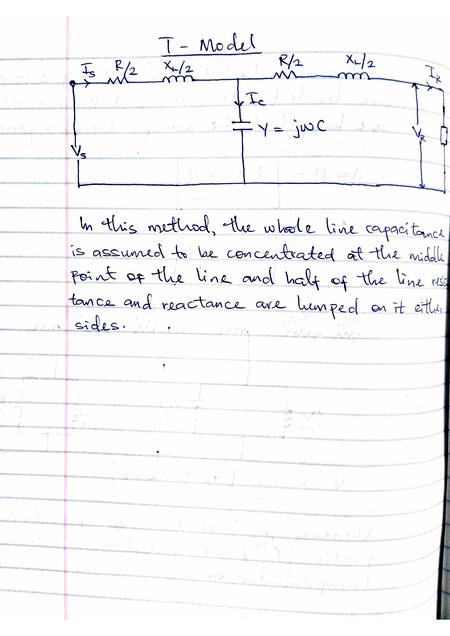 T - Model
Is R/2 XL/2 R/2 XL/2 IR
Ic
Y = jωC
Vs VR
In this method, the whole line capacitance
is assumed to be concentrated at the middle
point of the line and half of the line ress
tance and reactance are lumped on it either
sides.